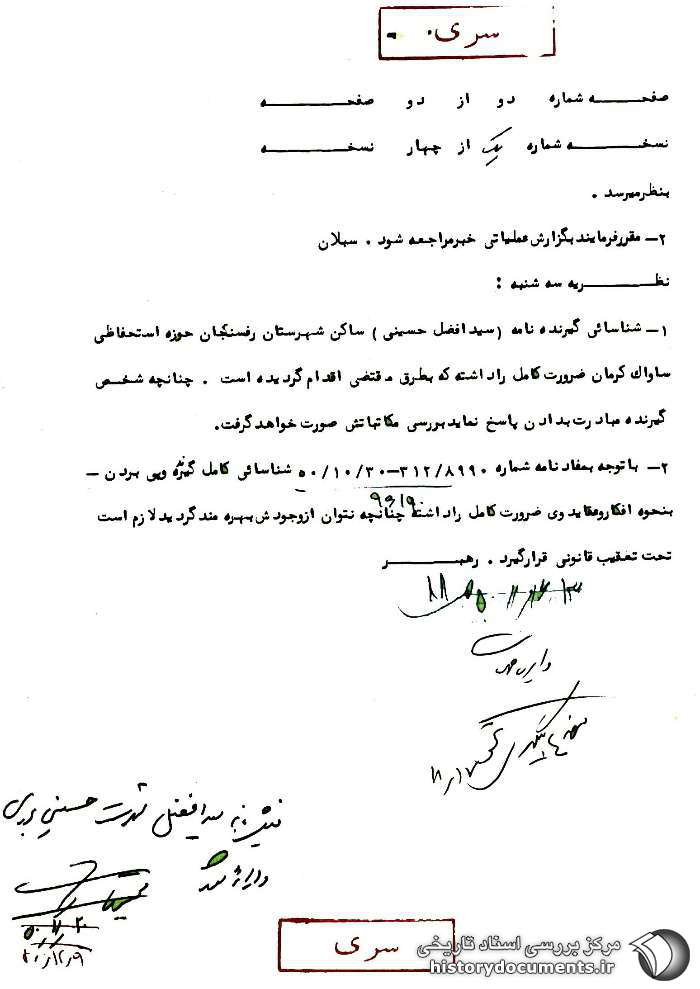 سری
صفحه شماره دو از دو صفحه
نسخه شماره یک از چهار نسخه
بنظرمیرسد .
۲- مقررفرمایند بگزارش عملیاتی خبرمراجعه شود . سبلان
نظریه سه شنبه :
۱- شناسائی گیرنده نامه (سید افضل حسینی) ساکن شهرستان رفسنجان حوزه استحفاظی
ساواك کرمان ضرورت کامل راد اشته که بطرق مقتضی اقدام گردیده است . چنانچه شخص
گیرنده مبادرت بدادن پاسخ نماید بررسی مکاتباتش صورت خواهد گرفت.
۲- با توجه بمفاد نامه شماره ۳۱۲/۸۹۹۰-۵۰/۱۰/۳۰ شناسائی کامل گیرنده وپی بردن -
بنحوه افکاروعقاید وی ضرورت کامل راد اشته چنانچه نتوان ازوجودش بهره مند گردید لازم است
تحت تعقیب قانونی قرارگیرد . رهبر
سید افضل شهرت حسینی
سری
مرکز بررسی اسناد تاریخی
historydocuments.ir